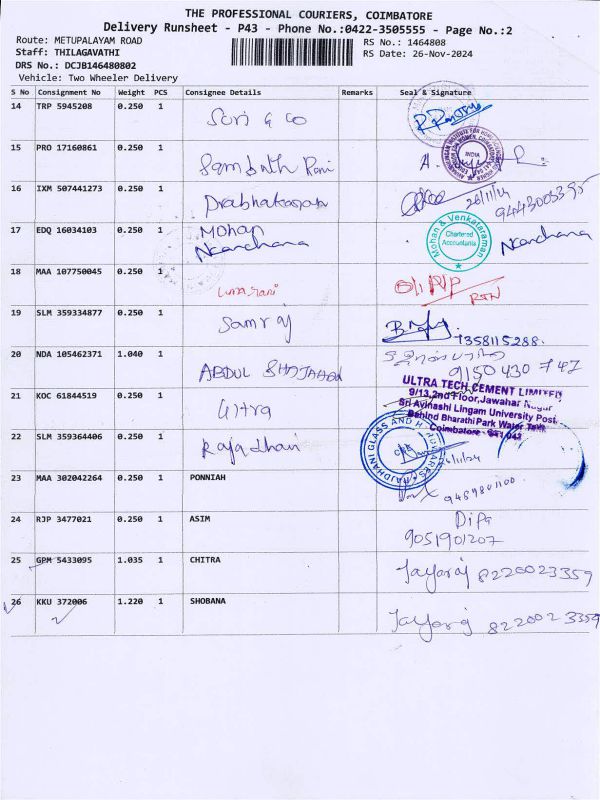 THE PROFESSIONAL COURIERS, COIMBATORE
Delivery Runsheet - P43 - Phone No.:0422-3505555 - Page No.:2
Route: METUPALAYAM ROAD RS No.: 1464808
Staff: THILAGAVATHI RS Date: 26-Nov-2024
DRS No.: DCJB146480802
Vehicle: Two Wheeler Delivery
S No Consignment No Weight PCS Consignee Details Remarks Seal & Signature
14 TRP 5945208 0.250 1
Suri & Co
15 PRO 17160861 0.250 1
INDIA
Sambath Rani
16 IXM 507441273 0.250 1
Prabhakaran 26/11/24
17 EDQ 16034103 0.250 1 Mohan Mohan & Venkataraman
Ncandhana Chartered Accountants Ncandhana
18 MAA 107750045 0.250 1
Uma Rani RTN
19 SLM 359334877 0.250 1
Samraj 1358115288.
20 NDA 105462371 1.040 1
ABDUL 9150 430 747
21 KOC 61844519 0.250 1 ULTRA TECH CEMENT LIMITED
9/13,2nd Floor,Jawahar Nagar
Ultra Sri Avinashi Lingam University Post,
Behind Bharathi Park Water Tank
22 SLM 359364406 0.250 1 Coimbatore - 641 043
RAJADHANI GLASS AND HARDWARES
CBE
Rajadhani
23 MAA 302042264 0.250 1 PONNIAH
24 RJP 3477021 0.250 1 ASIM Dipa
9051901207
25 GPM 5433095 1.035 1 CHITRA
Jayaraj 8220023359
26 KKU 372006 1.220 1 SHOBANA
Jayaraj 8220023359